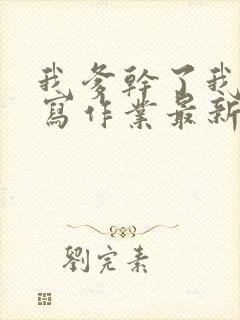 我爹幹了我
寫作業最新
劉完素